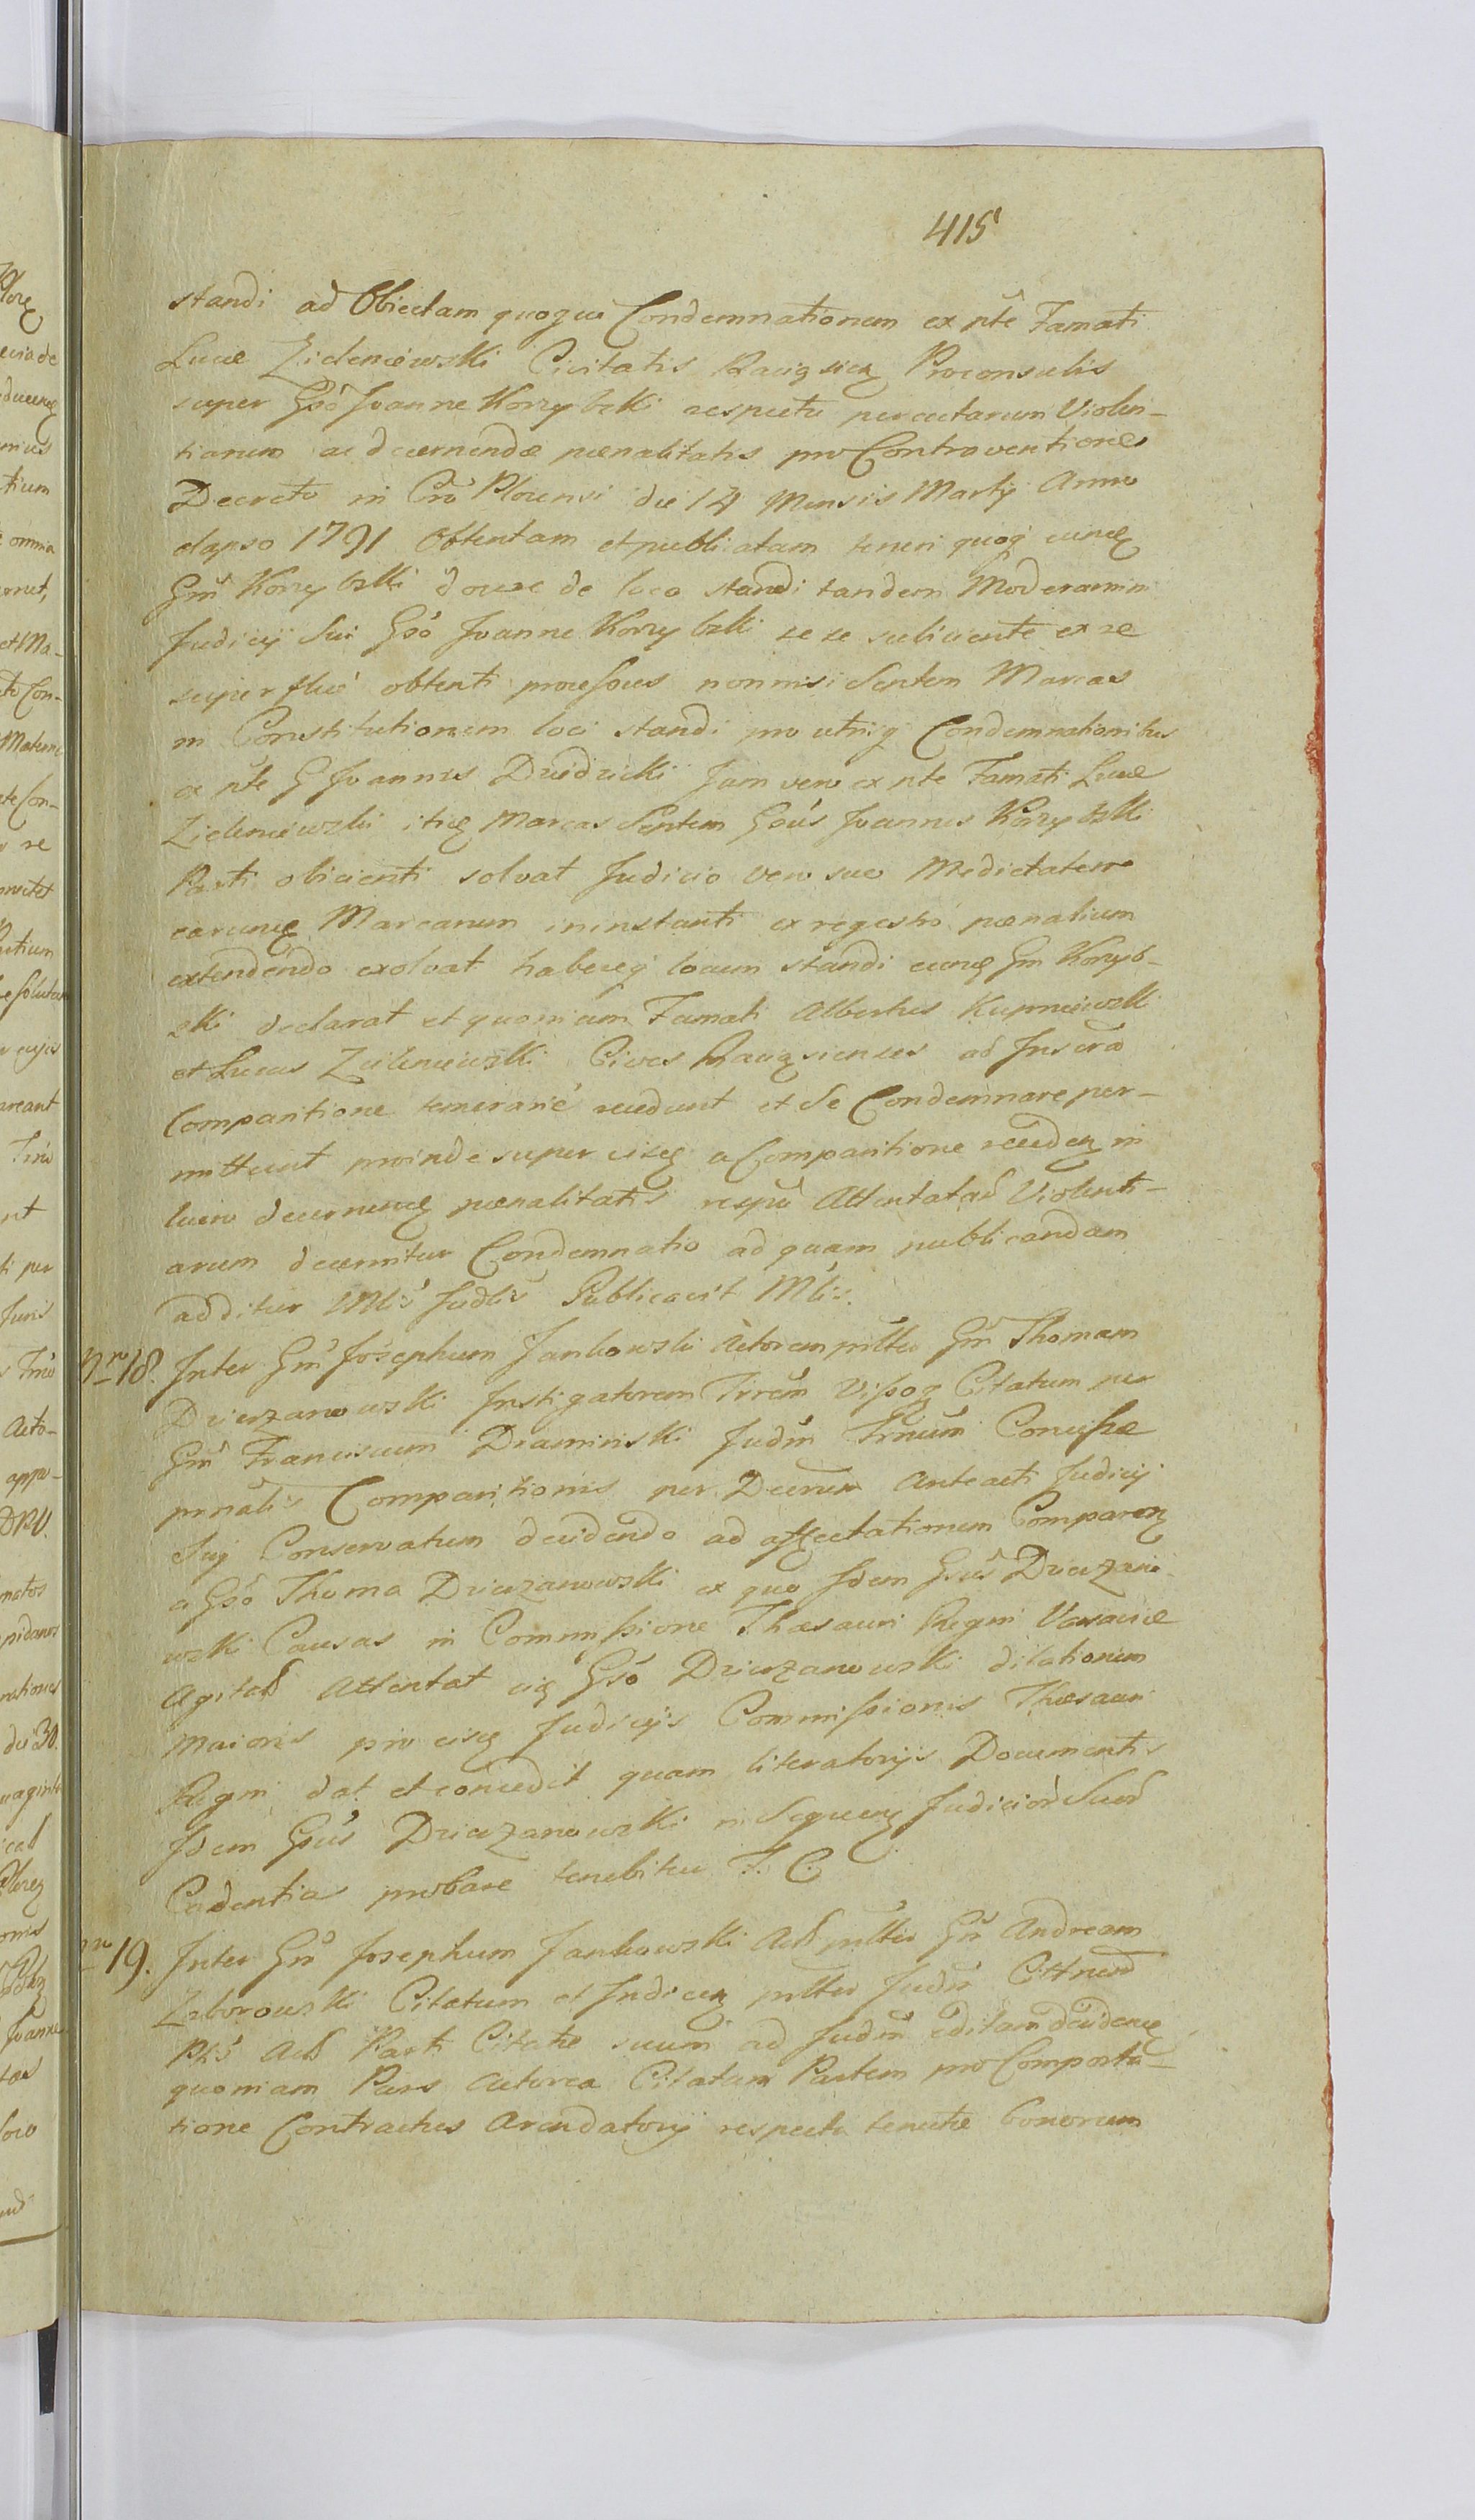 415
standi ad Obiectam quoque Condemnationem ex pte Famati
Lucæ Zieleniewski Civitatis Raciąsien Proconsulis
super Gsō Joanne Korzybski respectu peractarum Violen-
tiarum ac decernendæ pœnalitatis pro Controventione
Decreto in Crō Plocensi die 14 Mensis Martij Anno
elapso 1791 Obtentam et publicatam teneri quoq eunde
Gm̄ Korzybski docere de loco standi tandem Moderamini
Judicij Sui Gsō Joanne Korzybski se se subiiciente ex re
superflué obtenti processus nonnisi Septem Marcas
in Constitutionem loci standi pro utrisq Condemnationibus
ex pte G Joannis Dziedzicki Jam vero ex pte Famati Lucæ
Zieleniewski itide Marcas Septem Gsus Joannes Korzybski
Parti obicienti solvat Judicio vero suo Medietatem
earunde Marcarum in instanti ex regestro pœnalium
extendendo exolvat habereq locum standi eunde Gm Korzyb-
ski declarat et quoniam Famati Albertus Kupniewski
et Lucas Zieleniewski Cives Raciąsienses ad Inscrā
Comparitione temerarié recedunt et Se Condemnare per-
mittunt proinde super iisde a Comparitione recedenz in
lucro decernende pœnalitatis respū Attentatarū Violenti-
arum decernitur Condemnatio ad quam publicandam
additur Mlis Judlis Publicavit Mlis.
Nro 18. Inter Gm̄ Josephum Jankowski Actorem pltter Gm̄ Thomam
Dzierzanowski Instigatorem Trrem Vissog Citatum per
Gm̄ Franciscum Draminski Judm Trnum Concissæ
prnalis Comparitionis per Decrum anteacti Judicij
Sui Conservatum decidendo ad affectationem Comparen
a Gsō Thoma Dzierzanowski ex quo Idem Gsus Dzierzano-
wski Causas in Commissione Thesauri Regni Varsaviæ
Agitaū Attentat eide Gsō Dzierzanowski dilationem
Maioris pro eisde Judicijs Commissionis Thesauri
Regni dat et concedit quam literatorijs Documentis
Idem Gsus Dzierzanowski in Sequenz Judiciorū Suorū
Cadentia probare tenebitur T. C.
Nro 19. Inter Gm̄ Josephum Jankowski Act pltter Gm̄ Andream
Zaborowski Citatum et Judicen pltter Judm Cittnem
Ptis Act Parti Citatæ suum ad Judm editam decidende
quoniam Pars Actorea Citatam Partem pro Comporta-
tione Contractus Arendatorij respectu tenutæ bonorum